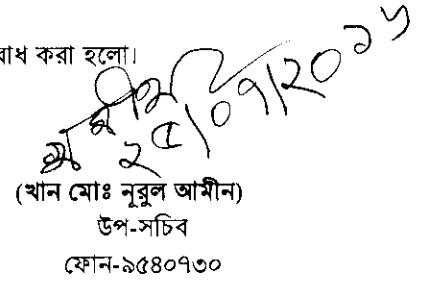 াধ করা হলো।
২৫/০৭/২০১৬
(খান মোঃ নূরুল আমীন)
উপ-সচিব
ফোন-৯৫৪০৭৩০